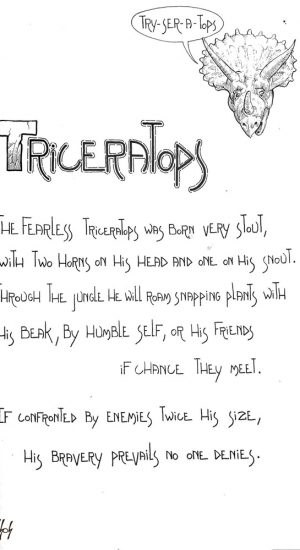 Try-ser-a-tops
Triceratops
The Fearless Triceratops was born very stout,
with two horns on his head and one on his snout.
Through the jungle he will roam snapping plants with
his beak, by humble self, or his friends
if chance they meet.
If confronted by enemies twice his size,
his bravery prevails no one denies.